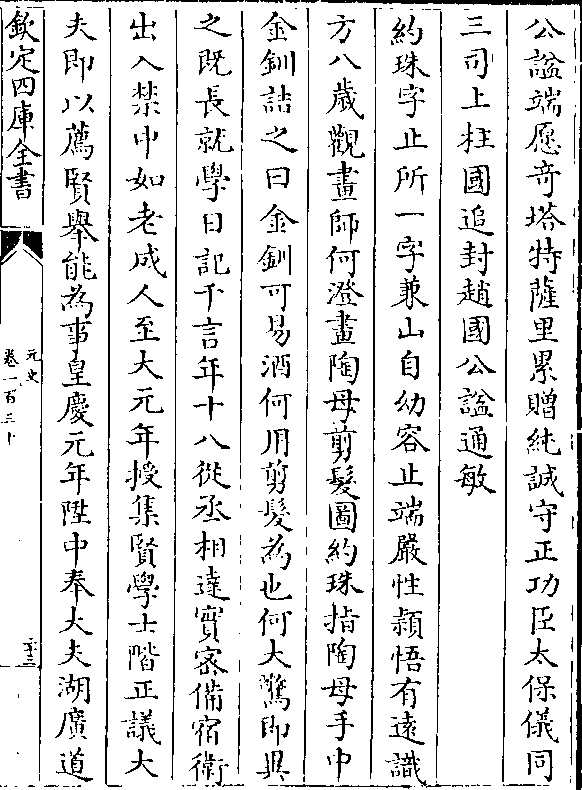 公謚端愿竒塔特薩里累贈純誠守正功臣太保儀同
三司上柱國追封趙國公謚通敏
約珠字止所一字兼山自幼容止端嚴性頴悟有遠識
方八歲觀畫師何澄畫陶母剪髮圖約珠指陶母手中
金釧詰之曰金釧可易酒何用剪髮為也何大驚即異
之既長就學日記千言年十八從丞相達實密備宿衛
出入禁中如老成人至大元年授集賢學士階正議大
夫即以薦賢舉能為事皇慶元年陞中奉大夫湖廣道
欽定四庫全書
元史
卷一百三十
二十三